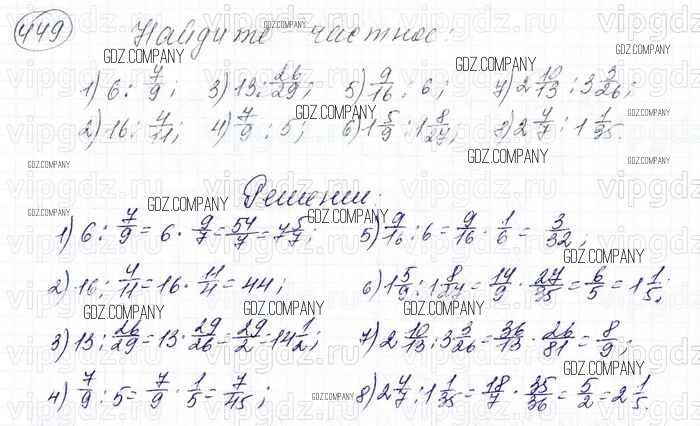 449 Найдите частное:
1) 6 : 7/9; 3) 13 : 26/29; 5) 9/16 : 6; 7) 2 10/13 : 3 3/26;
2) 16 : 4/11; 4) 7/9 : 5; 6) 1 5/9 : 1 8/27; 8) 2 4/7 : 1 1/35.
Решение:
1) 6 : 7/9 = 6 · 9/7 = 54/7 = 7 5/7; 5) 9/16 : 6 = 9/16 · 1/6 = 3/32;
2) 16 : 4/11 = 16 · 11/4 = 44; 6) 1 5/9 : 1 8/27 = 14/9 · 27/35 = 6/5 = 1 1/5;
3) 13 : 26/29 = 13 · 29/26 = 29/2 = 14 1/2; 7) 2 10/13 : 3 3/26 = 36/13 · 26/81 = 8/9;
4) 7/9 : 5 = 7/9 · 1/5 = 7/45; 8) 2 4/7 : 1 1/35 = 18/7 · 35/36 = 5/2 = 2 1/5.
GDZ.COMPANY
vipgdz.ru